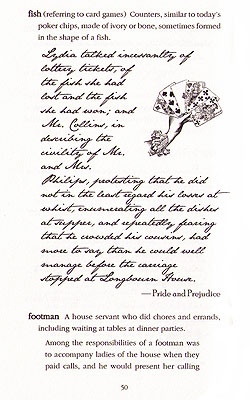 fish (referring to card games) Counters, similar to today's
poker chips, made of ivory or bone, sometimes formed
in the shape of a fish.
Lydia talked incessantly of
lottery tickets, of
the fish she had
lost and the fish
she had won; and
Mr. Collins, in
describing the
civility of Mr.
and Mrs.
Philips, protesting that he did
not in the least regard his losses at
whist, enumerating all the dishes
at supper, and repeatedly fearing
that he crowded his cousins, had
more to say than he could well
manage before the carriage
stopped at Longbourn House.
—Pride and Prejudice
footman A house servant who did chores and errands,
including waiting at tables at dinner parties.
Among the responsibilities of a footman was
to accompany ladies of the house when they
paid calls, and he would present her calling
50